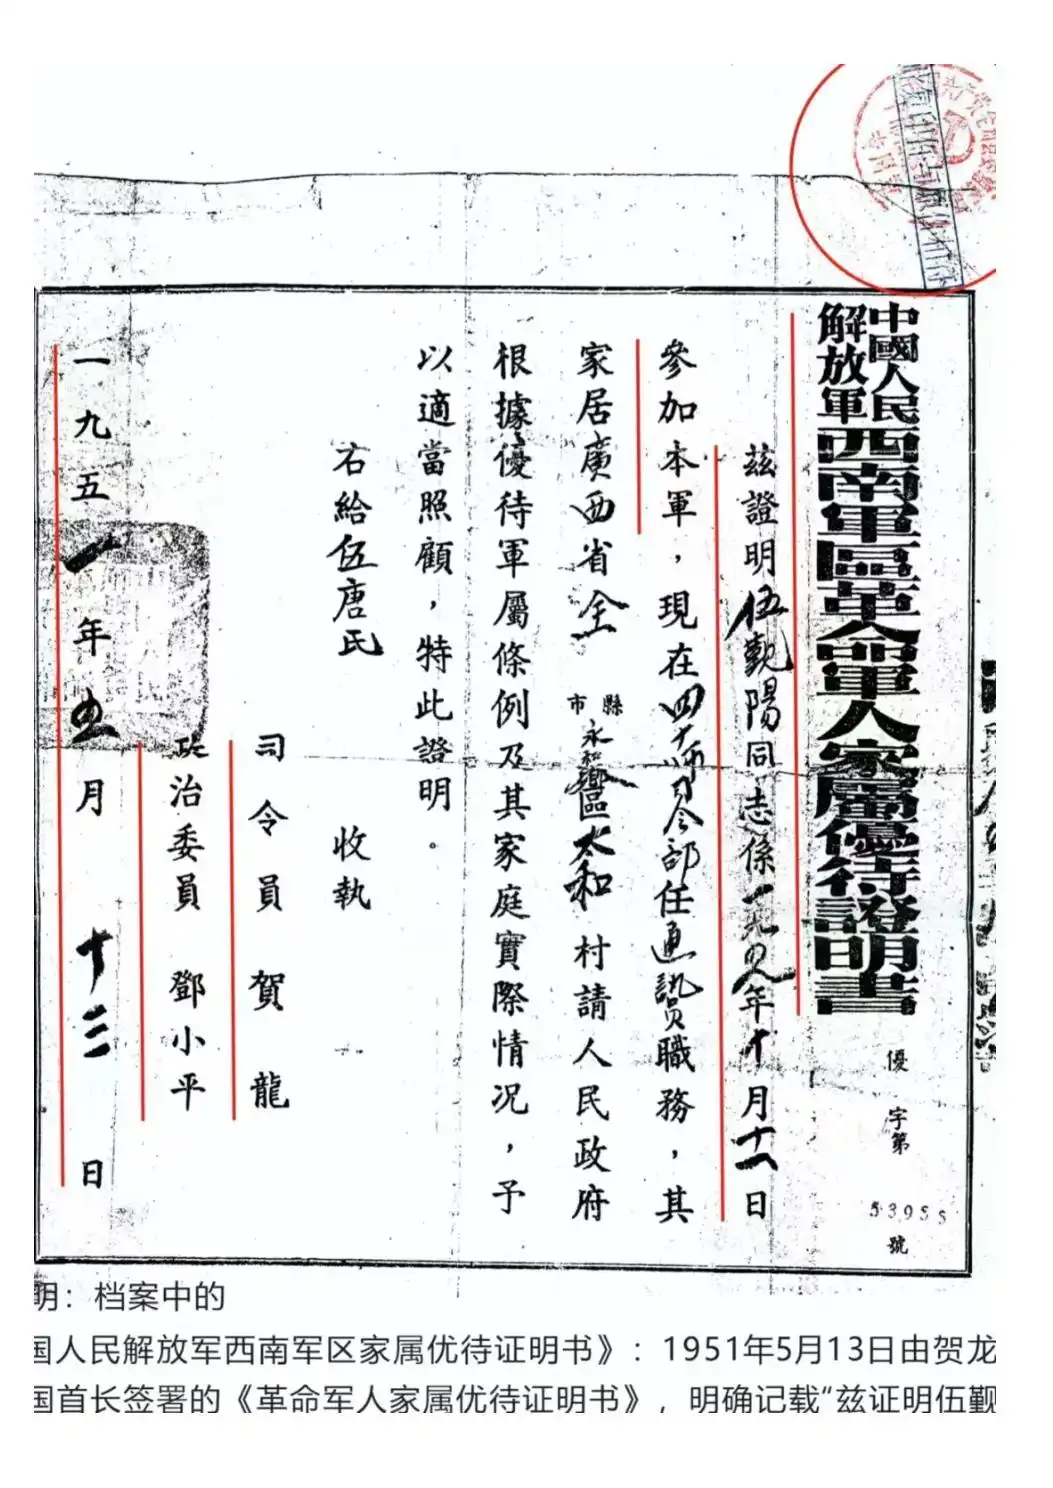 中國人民解放軍西南軍區革命軍人家屬優待證明書
優字第53955號
茲證明伍觐陽同志係一九四九年十月十一日
參加本軍，現在四十八師司令部任通訊員職務，其
家居廣西省全縣市永和鄉區太和村請人民政府
根據優待軍屬條例及其家庭實際情況，予
以適當照顧，特此證明。
右給伍唐氏 收執
司令員賀龍
政治委員 鄧小平
一九五一年五月十三日
明：档案中的
国人民解放军西南军区家属优待证明书》：1951年5月13日由贺龙
国首长签署的《革命军人家属优待证明书》，明确记载“兹证明伍觐